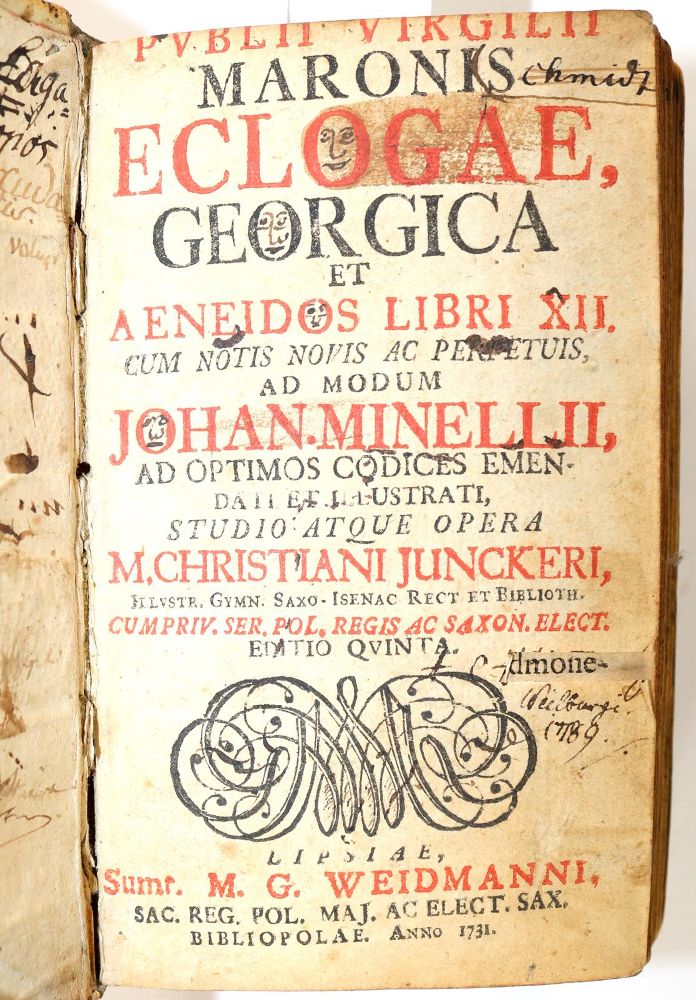 PVBLII VIRGILII
MARONIS Schmidt
ECLOGAE,
GEORGICA
ET
AENEIDOS LIBRI XII.
CUM NOTIS NOVIS AC PERPETUIS,
AD MODUM
JOHAN. MINELLII,
AD OPTIMOS CODICES EMEN-
DATI ET ILLUSTRATI,
STUDIO ATQUE OPERA
M. CHRISTIANI JUNCKERI,
ILLVSTR. GYMN. SAXO-ISENAC RECT ET BIBLIOTH.
CUM PRIV. SER. POL. REGIS AC SAXON. ELECT.
EDITIO QVINTA.
dmone-
Weilburgi
1789.
LIPSIAE,
Sumt. M. G. WEIDMANNI,
SAC. REG. POL. MAJ. AC ELECT. SAX.
BIBLIOPOLAE. ANNO 1731.